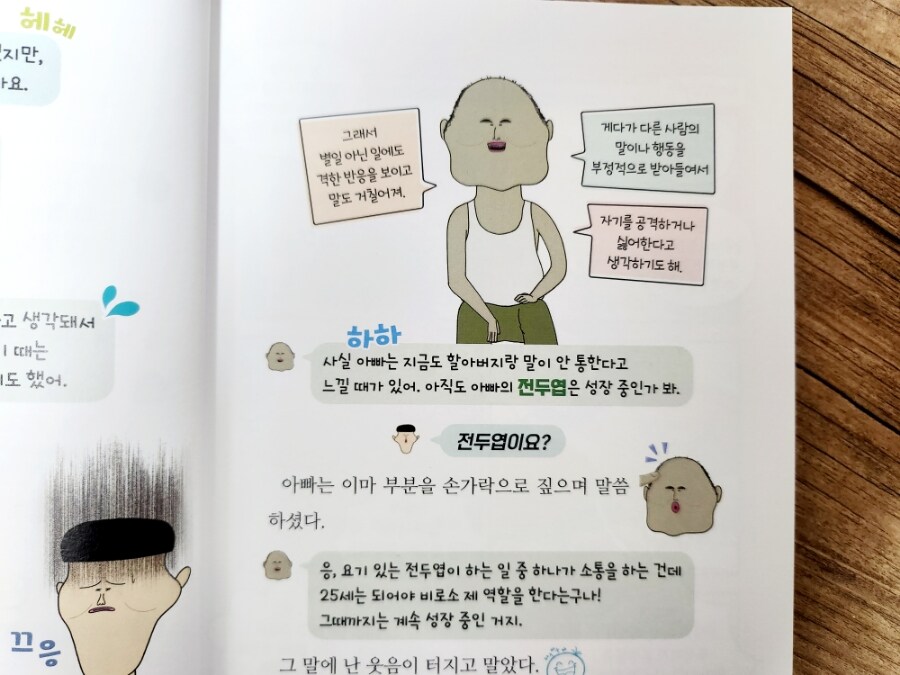 헤헤
지만,
요.
고 생각돼서
때는
도 했어.
끄응
그래서
별일 아닌 일에도
격한 반응을 보이고
말도 거칠어져.
게다가 다른 사람의
말이나 행동을
부정적으로 받아들여서
자기를 공격하거나
싫어한다고
생각하기도 해.
하하
사실 아빠는 지금도 할아버지랑 말이 안 통한다고
느낄 때가 있어. 아직도 아빠의 전두엽은 성장 중인가 봐.
전두엽이요?
아빠는 이마 부분을 손가락으로 짚으며 말씀
하셨다.
응, 요기 있는 전두엽이 하는 일 중 하나가 소통을 하는 건데
25세는 되어야 비로소 제 역할을 한다는구나!
그때까지는 계속 성장 중인 거지.
그 말에 난 웃음이 터지고 말았다.